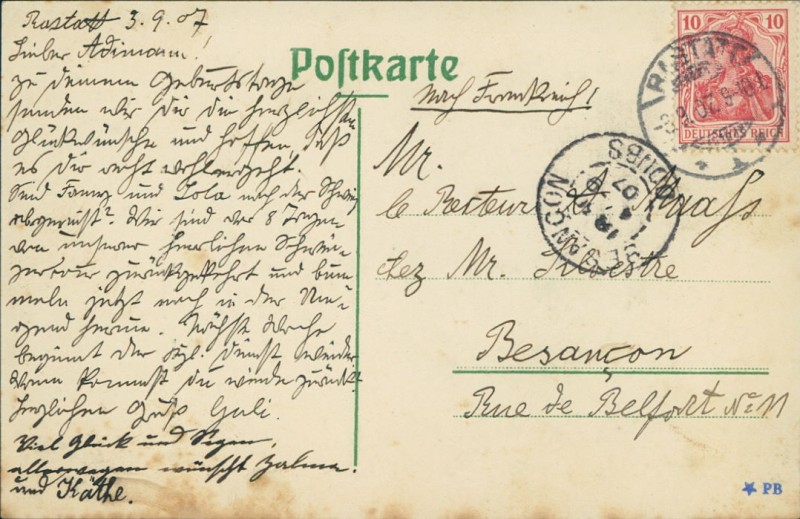 Rastatt 3.9.07
Lieber Adimann!
zu deinem Geburtstage
senden wir Dir die herzlichsten
Glückwünsche und hoffen, daß
es dir recht wohlergeht.
Sind Fanny und Lola nach der Schweiz
abgereist? Wir sind vor 8 Tagen
von unserer herrlichen Schwei-
zertour zurückgekehrt und bum-
meln jetzt noch in der Um-
gegend herum. Nächste Woche
beginnt der kgl. Dienst wieder.
Wann kommst du wieder zurück?
Herzlichen Gruß
Viel Glück und Segen,
allerwegen wünscht
und Käthe.
Postkarte
Nach Frankreich!
Mr.
le Docteur
chez Mr. Silvestre
Besançon
Rue de Belfort No 11
10 10
DEUTSCHES REICH
RASTATT
BESANÇON
DOUBS
PB